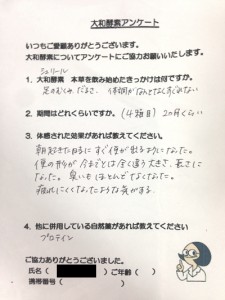 大和酵素アンケート
いつもご愛顧ありがとうございます。
大和酵素についてアンケートにご協力お願いいたします。
シュリール
1. 大和酵素 本草を飲み始めたきっかけは何ですか。
足のむくみ、だるさ、体調がなんとなくすぐれない
2. 期間はどれくらいですか。(4箱目) 2か月くらい
3. 体感された効果があれば教えてください。
朝起きた時にすぐ便が出るようになった。
便の形が今までとは全く違う大きさ、長さに
なった。臭いもほとんどなくなった。
疲れにくくなったような気がする。
4. 他に併用している自然薬があれば教えてください。
プロテイン
ご協力ありがとうございました。
氏名( )ご年齢( )
携帯番号( )